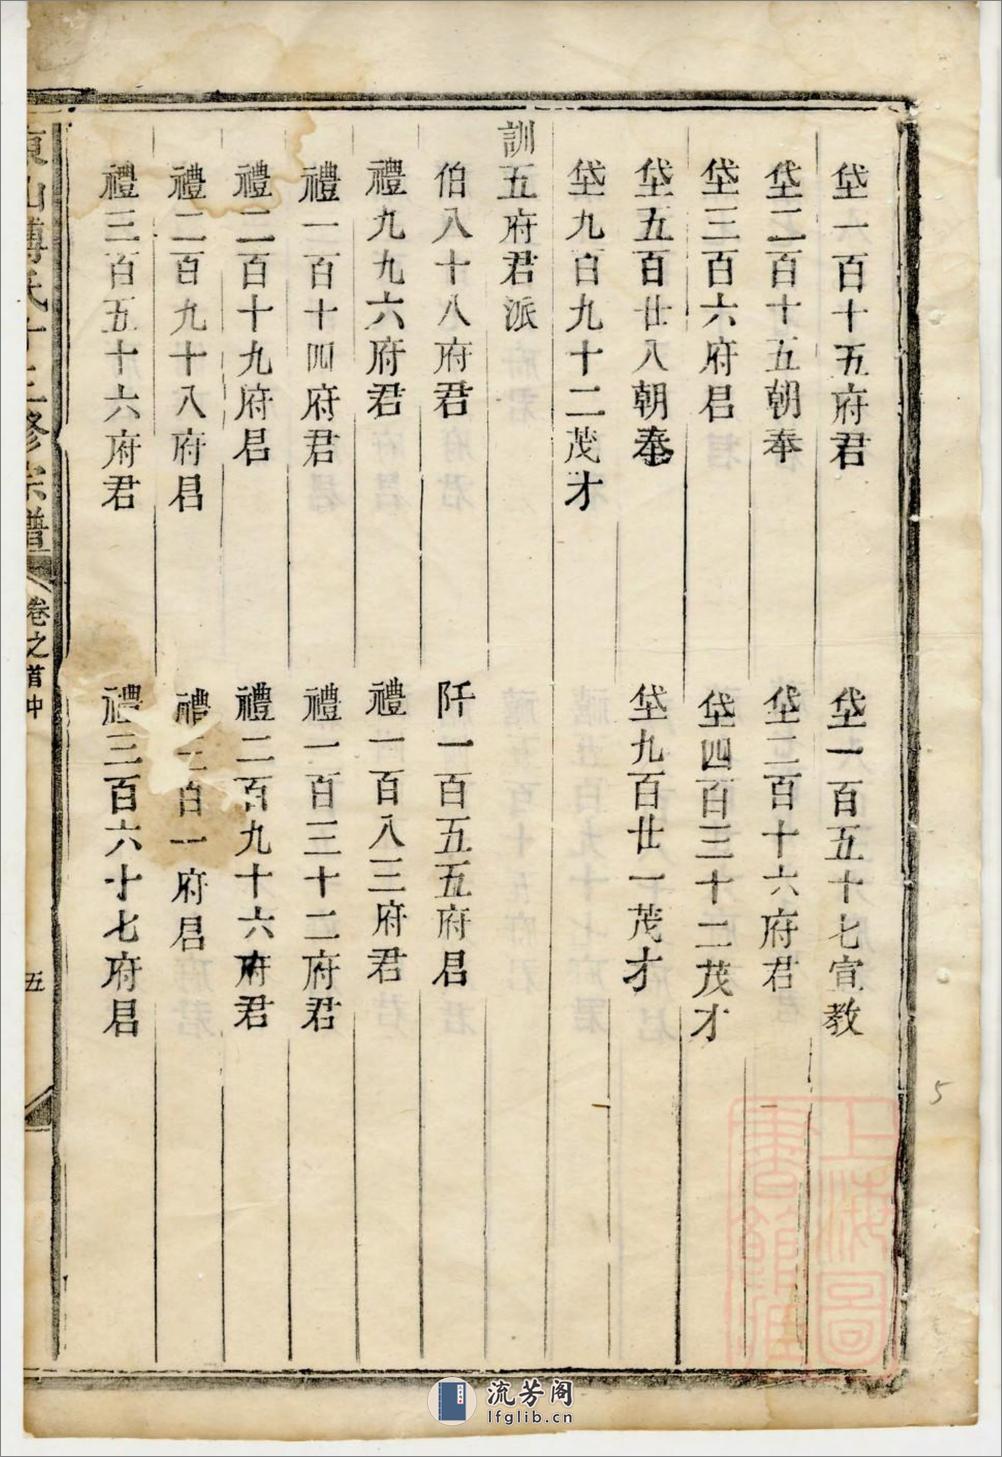 垡一百十五府君 垡一百五十七宣教
垡二百十五朝奉 垡二百十六府君
垡三百六府君 垡四百三十二茂才
垡五百廿八朝奉 垡九百廿一茂才
垡九百九十二茂才
訓五府君派
伯八十八府君 阡一百五五府君
禮九九六府君 禮一百八三府君
禮一百十四府君 禮一百三十二府君
禮二百十九府君 禮二百九十六府君
禮二百九十八府君 禮百一府君
禮三百五十六府君 禮三百六十七府君
東山傅氏十修宗譜 卷之首中 五
5
上海圖書館藏
流芳阁
lfglib.cn